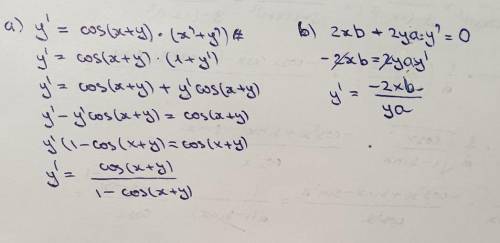 a) y' = cos(x+y) · (x'+y')
y' = cos(x+y) · (1+y')
y' = cos(x+y) + y'cos(x+y)
y' - y'cos(x+y) = cos(x+y)
y'(1-cos(x+y) = cos(x+y)
y' = cos(x+y) / 1-cos(x+y)
b) 2xb + 2ya·y' = 0
-2xb = 2yay'
y' = -2xb / ya